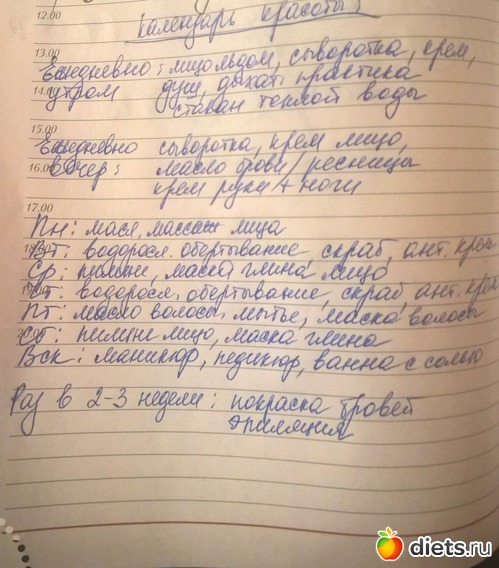 12.00
Календарь красоты:
13.00
Ежедневно: лицо льдом, сыворотка, крем,
14.00 утром душ, дыхат. практика
стакан теплой воды
15.00
Ежедневно сыворотка, крем лицо,
16.00 вечер: масло брови/ресницы
крем руки + ноги
17.00
Пн: массаж лица
Вт: водоросл. обертывание, скраб, ант. крем
Ср: пилинг, маска глина лицо
Чт: водоросл. обертывание, скраб, ант. крем
Пт: масло волосы, мытье, маска волосы
20.00
Сб: пилинг лицо, маска глина
Вск: маникюр, педикюр, ванна с солью
Раз в 2-3 недели: покраска бровей
эпиляция
diets.ru